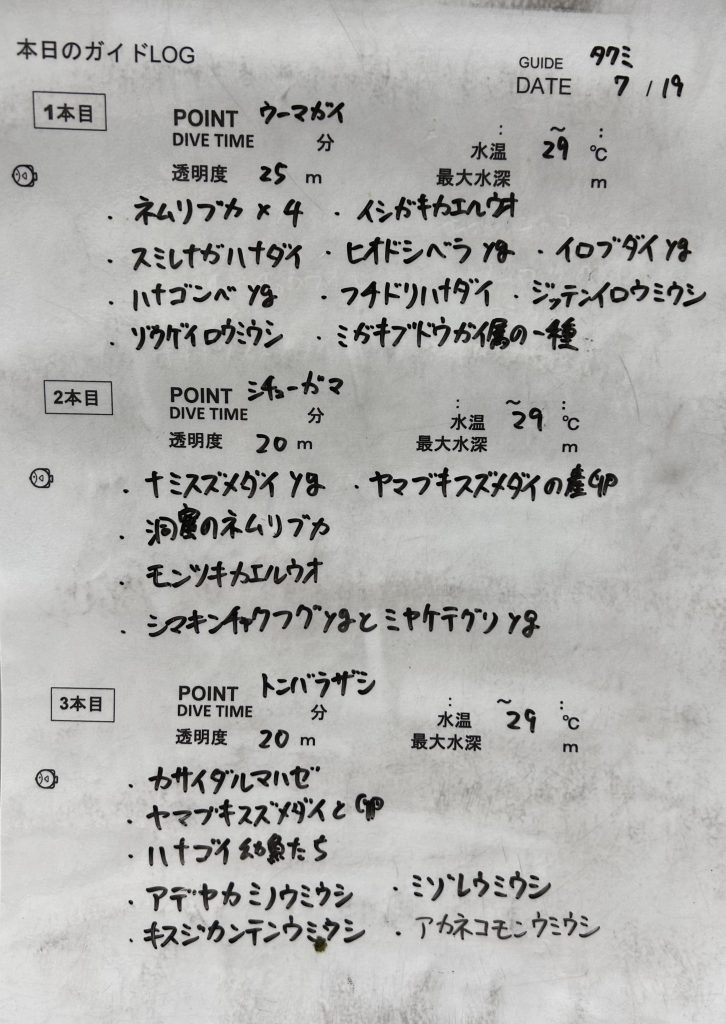 本日のガイドLOG
GUIDE タクミ
DATE 7 / 19
1本目 POINT ウーマガイ
DIVE TIME 分 : ~ :
透明度 25 m 水温 29 ℃
最大水深 m
・ネムリブカ×4 ・イシガキカエルウオ
・スミレナガハナダイ ・ヒオドシベラyg ・イロブダイyg
・ハナゴンベyg ・フチドリハナダイ ・ジッテンイロウミウシ
・ゾウゲイロウミウシ ・ミガキブドウガイ属の一種
2本目 POINT ミチューガマ
DIVE TIME 分 : ~ :
透明度 20 m 水温 29 ℃
最大水深 m
・ナミスズメダイyg ・ヤマブキスズメダイの産卵
・洞窟のネムリブカ
・モンツキカエルウオ
・シマキンチャクフグygとミヤケテグリyg
3本目 POINT トンバラザシ
DIVE TIME 分 : ~ :
透明度 20 m 水温 29 ℃
最大水深 m
・カサイダルマハゼ
・ヤマブキスズメダイと卵
・ハナゴイ幼魚たち
・アデヤカミノウミウシ ・ミゾレウミウシ
・キスジカンテンウミウシ ・アカネコモンウミウシ